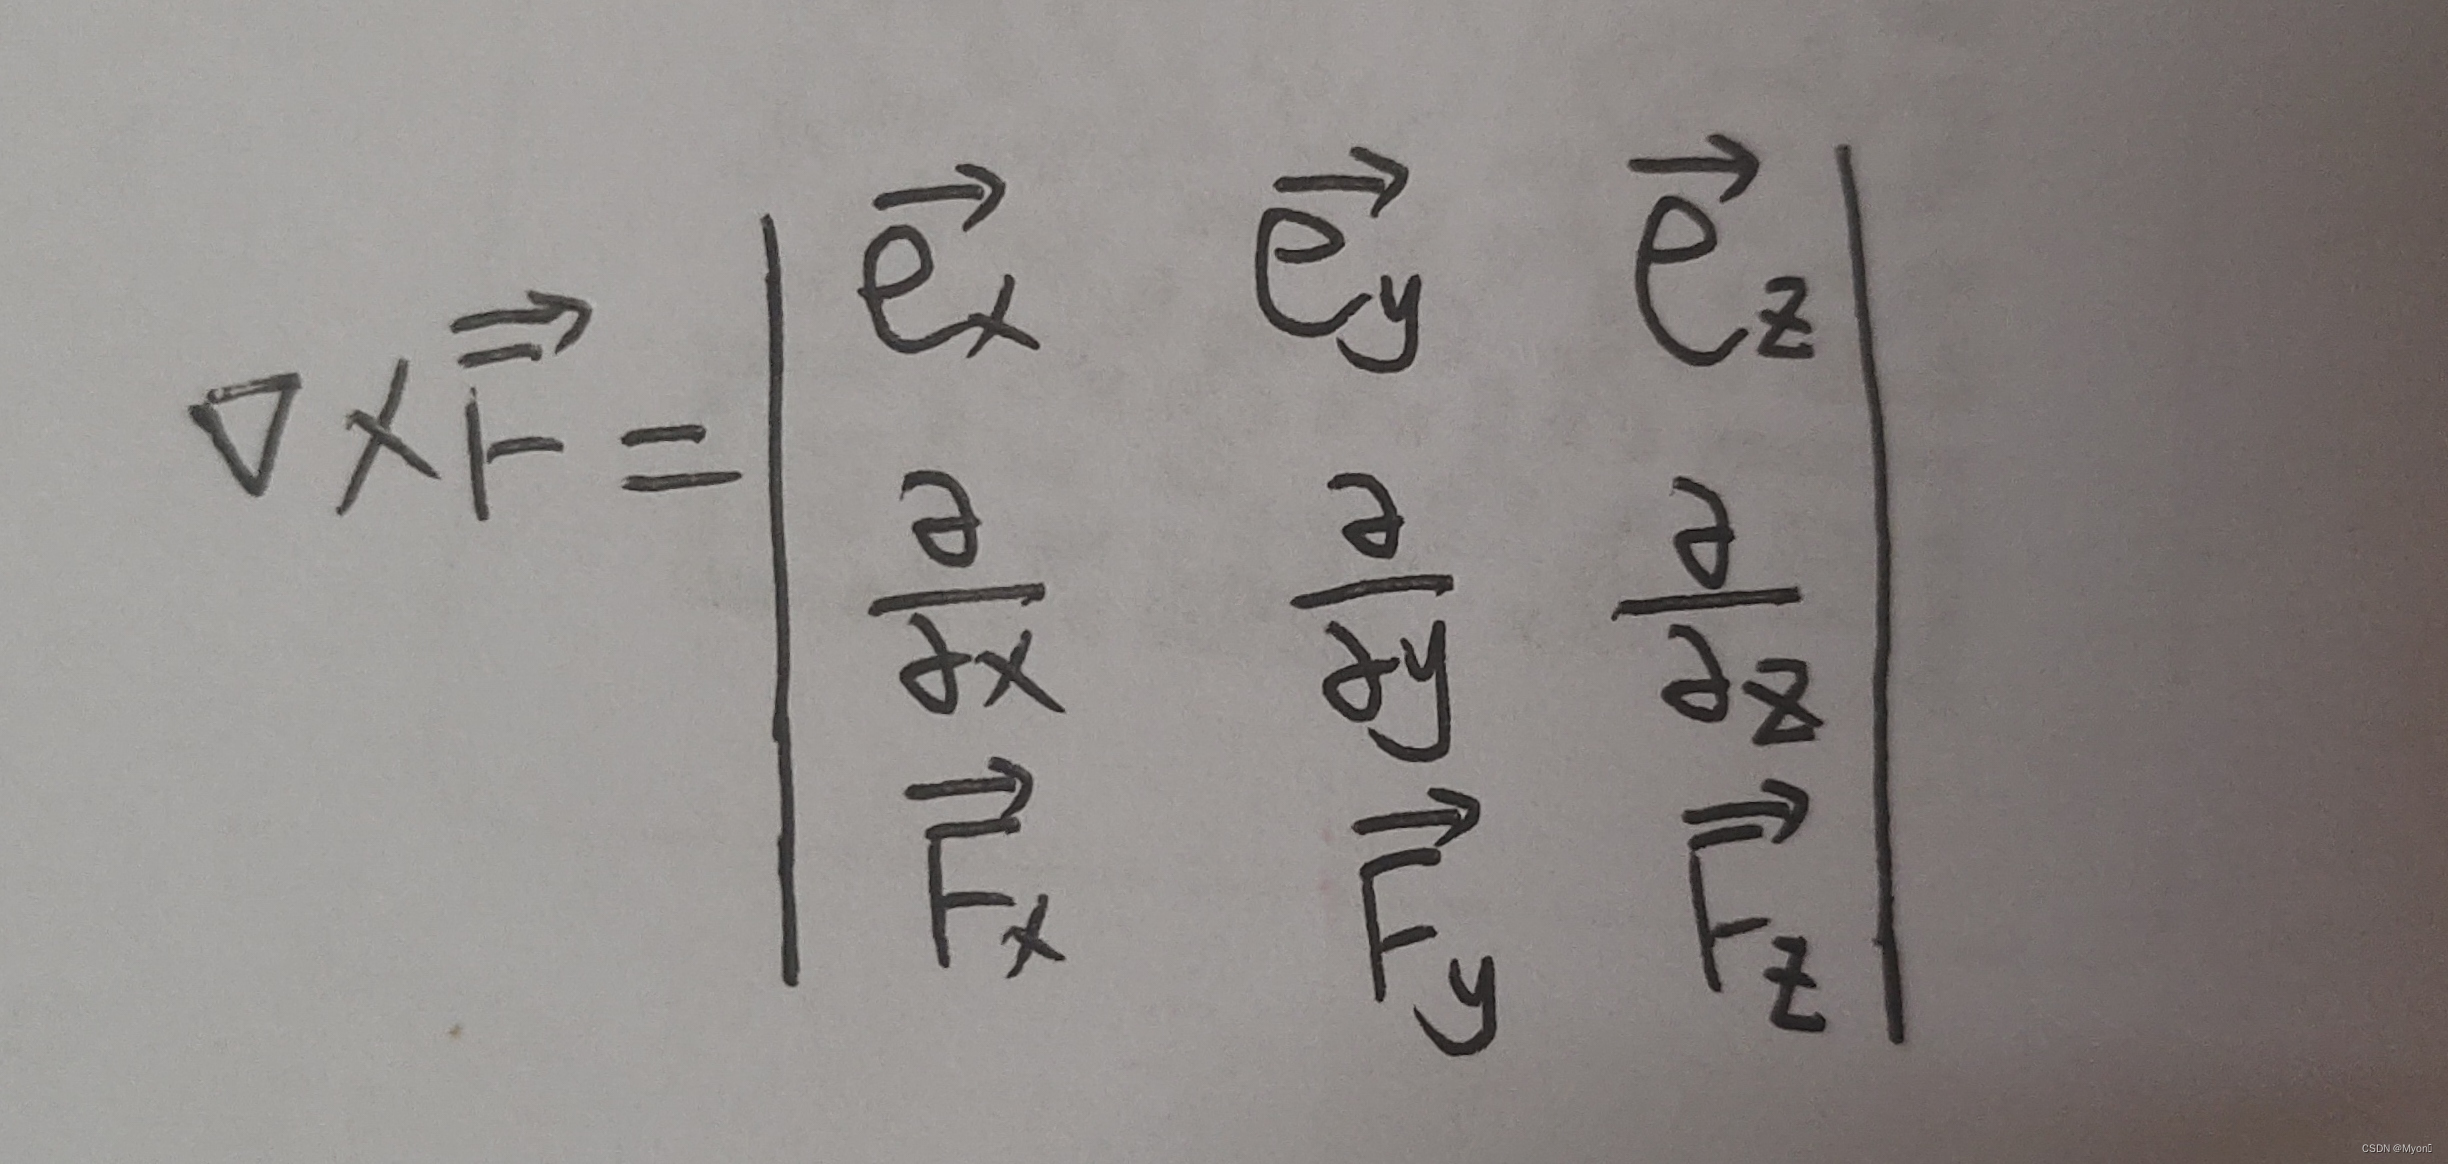 ∇×F⃗ = | e⃗x e⃗y e⃗z |
| ∂/∂x ∂/∂y ∂/∂z |
| F⃗x F⃗y F⃗z |
CSDN @Myon